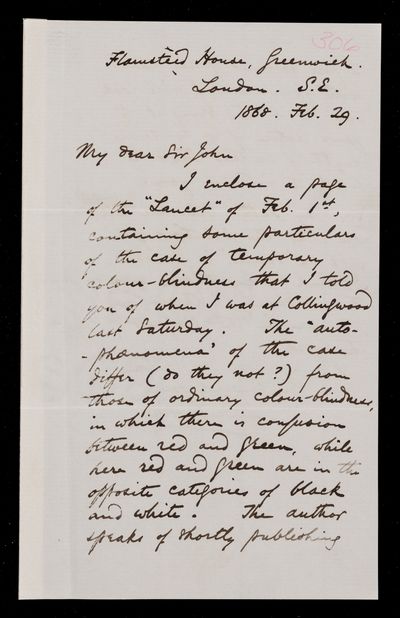 306
Flamsteed House, Greenwich.
London. S.E.
1868. Feb. 29.
My dear Sir John
I enclose a page
of the "Lancet" of Feb. 1st,
containing some particulars
of the case of temporary
colour-blindness that I told
you of when I was at Collingwood
last Saturday. The "auto-
-phænomena" of the case
differ (do they not?) from
those of ordinary colour-blindness,
in which there is confusion
between red and green, while
here red and green are in the
opposite categories of black
and white. The author
speaks of shortly publishing